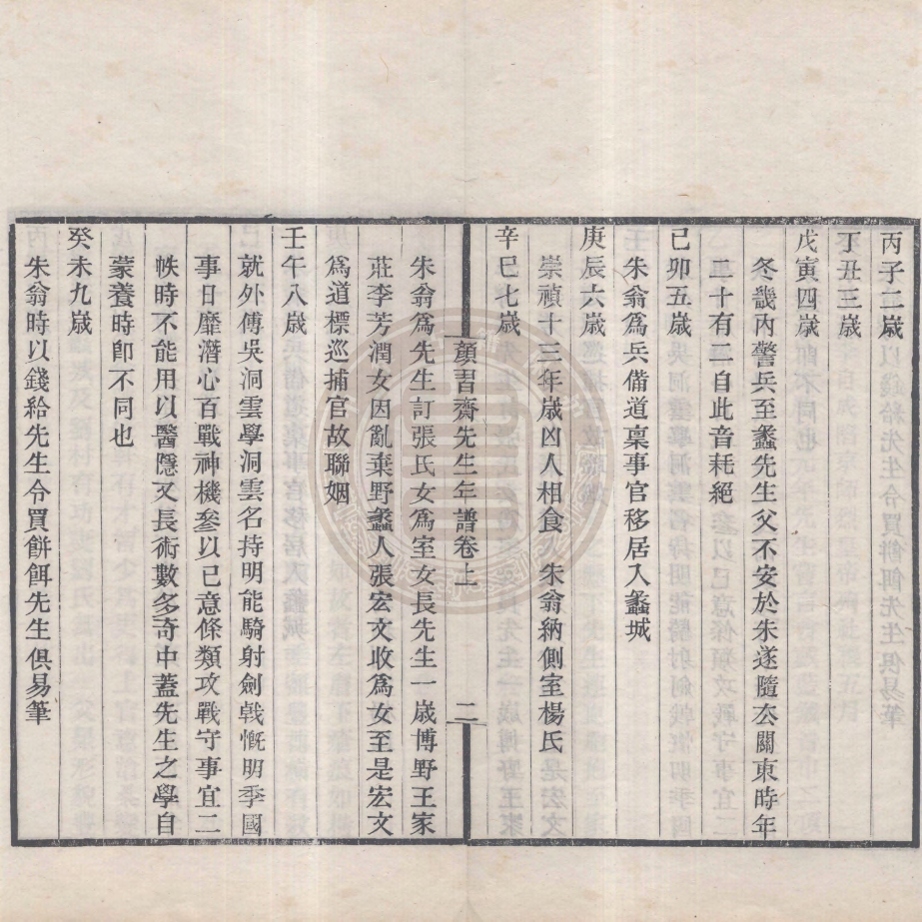 丙子二歲
丁丑三歲
戊寅四歲
冬畿內警兵至蠡先生父不安於朱遂隨厺關東時年
二十有二自此音耗絕
己卯五歲
朱翁爲兵備道稟事官移居入蠡城
庚辰六歲
崇禎十三年歲凶人相食朱翁納側室楊氏
辛巳七歲
顏習齋先生年譜卷上 二
朱翁爲先生訂張氏女爲室女長先生一歲博野王家
莊李芳潤女因亂棄野蠡人張宏文收爲女至是宏文
爲道標巡捕官故聯姻
壬午八歲
就外傅吳洞雲學洞雲名持明能騎射劍戟慨明季國
事日靡潛心百戰神機參以己意條類攻戰守事宜二
帙時不能用以醫隱又長術數多奇中蓋先生之學自
蒙養時卽不同也
癸未九歲
朱翁時以錢給先生令買餠餌先生俱易筆